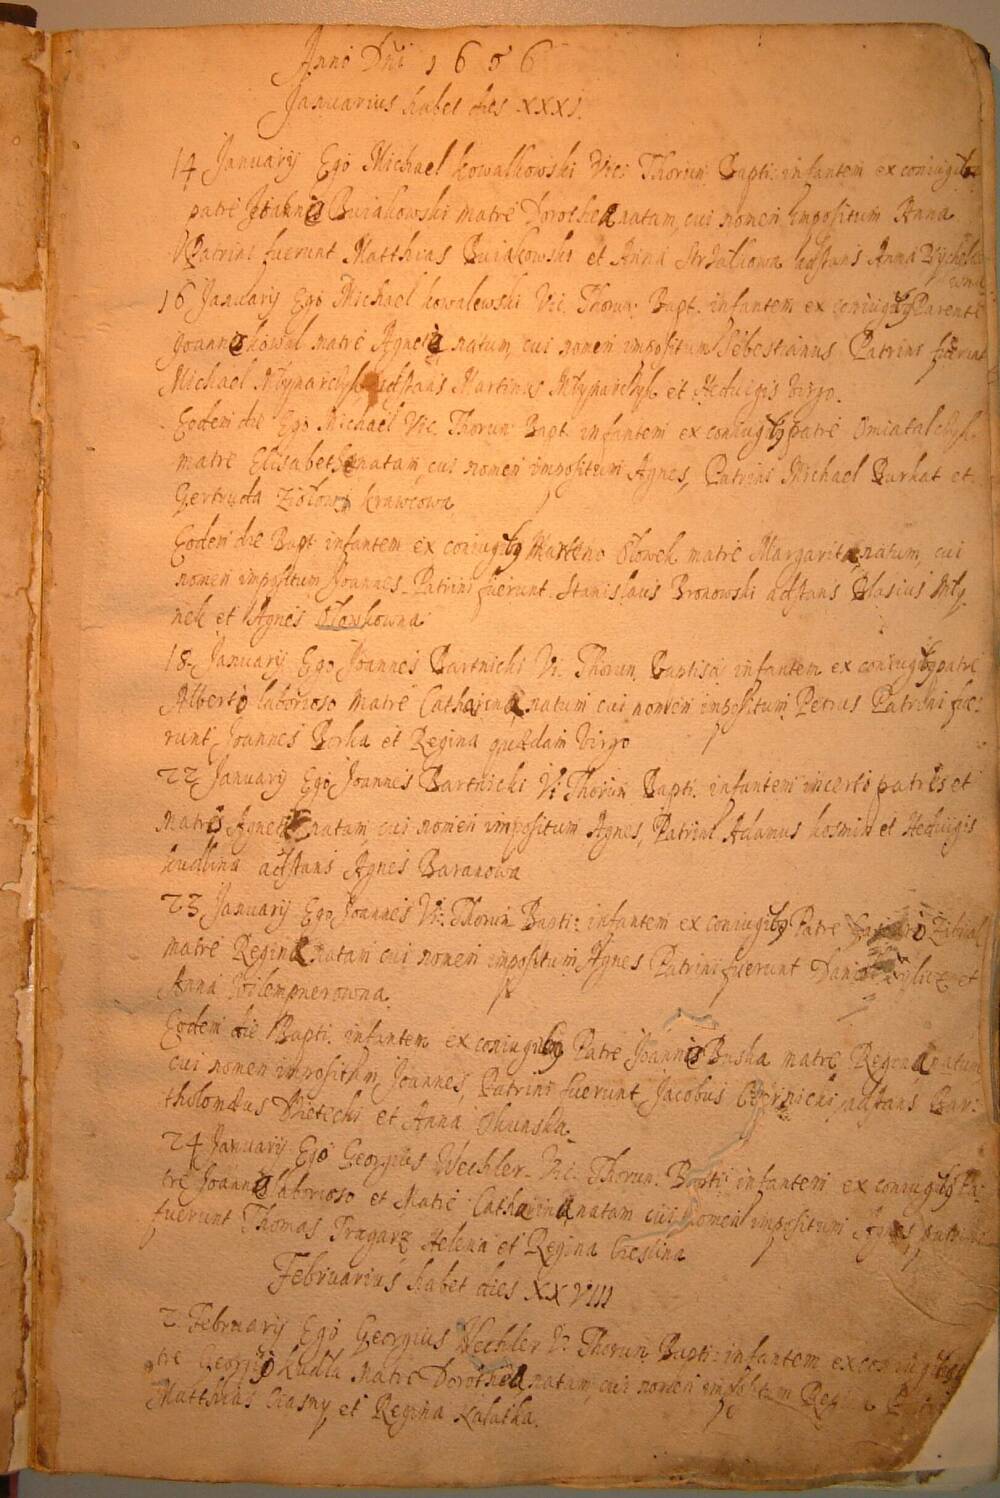 Anno Dñi 1606
Januarius habet dies XXXI.
14 Januarij Ego Michael Kowalkowski Vic: Thorun: Bapti: infantem ex coniugibꝫ
patre Joanne Buiakowski matre Dorothea natam, cui nomen impositum Anna
Patrini fuerunt Matthias Buiakowski et Anna adstans Anna
16 Januarij Ego Michael Kowalewski Vic. Thorun: Bapt. infantem ex coniugibꝫ Parente
Joanne Kowal matre Agnete natum, cui nomen impositum Sebestianus, Patrini fuerunt
Michael Młynarczyk adstans Martinus Młynarczyk et Heduigis Virgo.
Eodem die Ego Michael Vic. Thorun: Bapt. infantem ex coniugibꝫ patre
matre Elisabeth natam, cui nomen impositum Agnes, Patrini Michael Burkat et
Gertruda krawcowa
Eodem die Bapt. infantem ex coniugibꝫ Martino Słowek matre Margarita natum, cui
nomen impositum Joannes. Patrini fuerunt Stanislaus Bronowski adstans Blasius Mły
nek et Agnes
18 Januarij Ego Joannes Bartnicki Vi. Thorun. Baptisa: infantem ex coniugibꝫ patre
Alberto laborioso matre Catharina natum cui nomen impositum Petrus Patrini fue:
runt Joannes Borka et Regina quædam Virgo
22 Januarij Ego Joannes Bartnicki Vi Thorun Bapti: infantem incerto patris et
matris Agnetis natam, cui nomen impositum Agnes, Patrini Adamus kosmin et Heduigis
adstans Agnes Baranowa
23 Januarij Ego Joannes Vi: Thorun Bapti: infantem ex coniugibꝫ Patre
matre Regina natam cui nomen impositum Agnes Patrini fuerunt et
Anna
Eodem die Bapti. infantem ex coniugibꝫ Patre Joanne Buska matre Regina natum
cui nomen impositum Joannes, Patrini fuerunt Jacobus adstans Bar:
tholomæus et Anna
24 Januarij Ego Georgius Wechler Vic. Thorun. Bapti: infantem ex coniugibꝫ Pa:
tre Joanne laborioso et Matre Catharina natam cui nomen impositum Agnes patrini
fuerunt Thomas Tragarz Helena et Regina
Februarius habet dies XXVIII
2 Februarij Ego Georgius Wechler Vi. Thorun. Bapti: infantem ex coniugibꝫ
tre Georgio Kudla Matre Dorothea natam, cui nomen impositum
Matthias et Regina Kalatka.